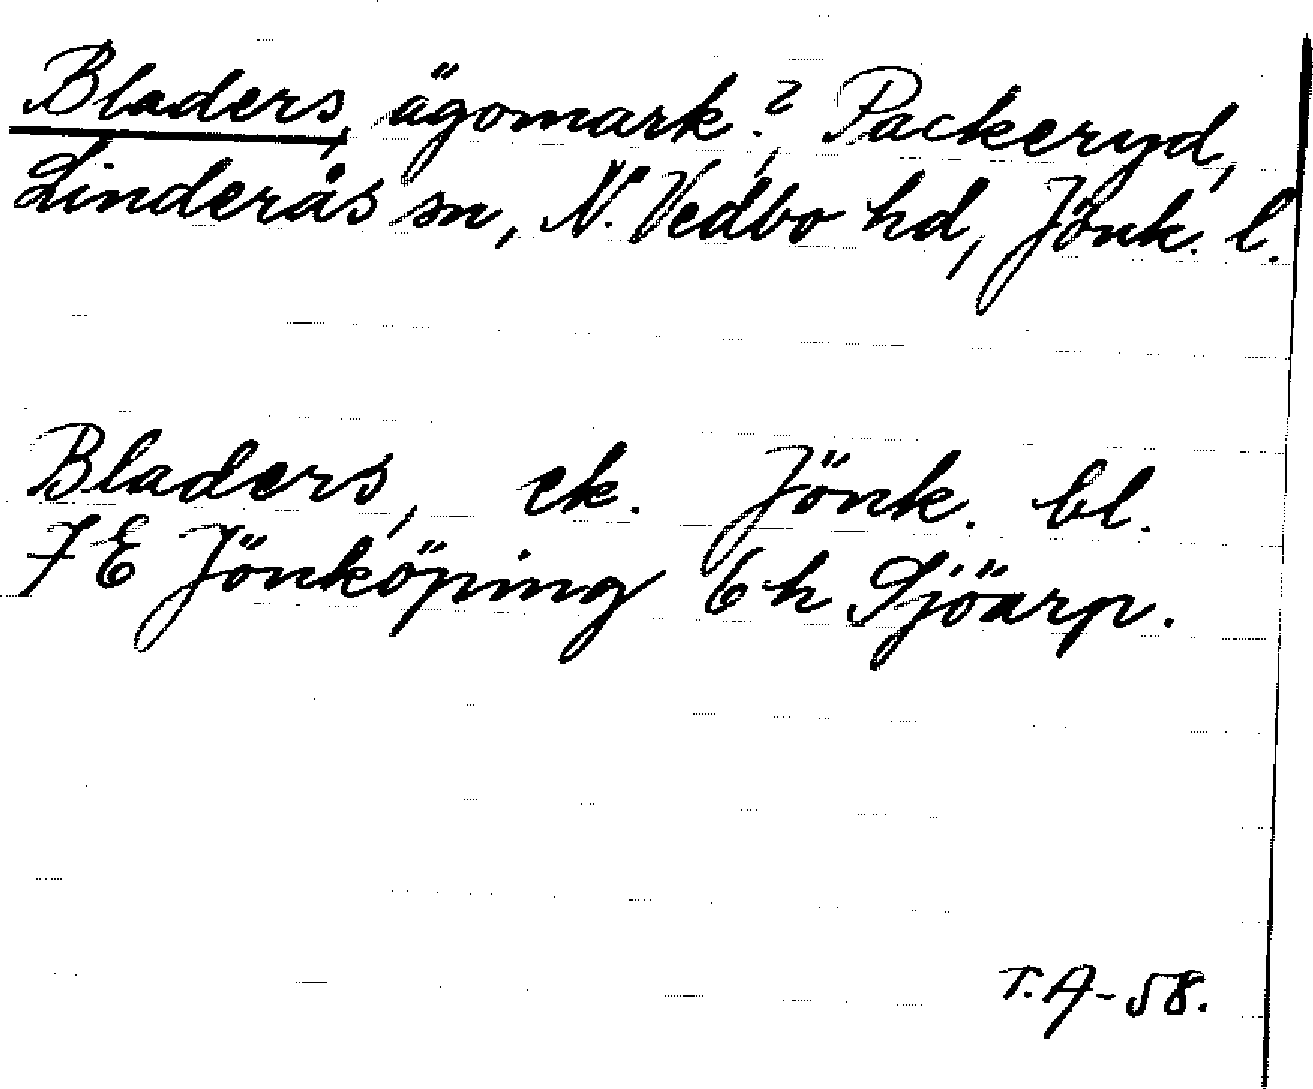 Bladers, ägomark?, Packeryd,
Linderås sn, N. Vedbo hd, Jönk. l.
Bladers, ek. Jönk. bl.
7E Jönköping 6h Sjöarp.
T.A-58.